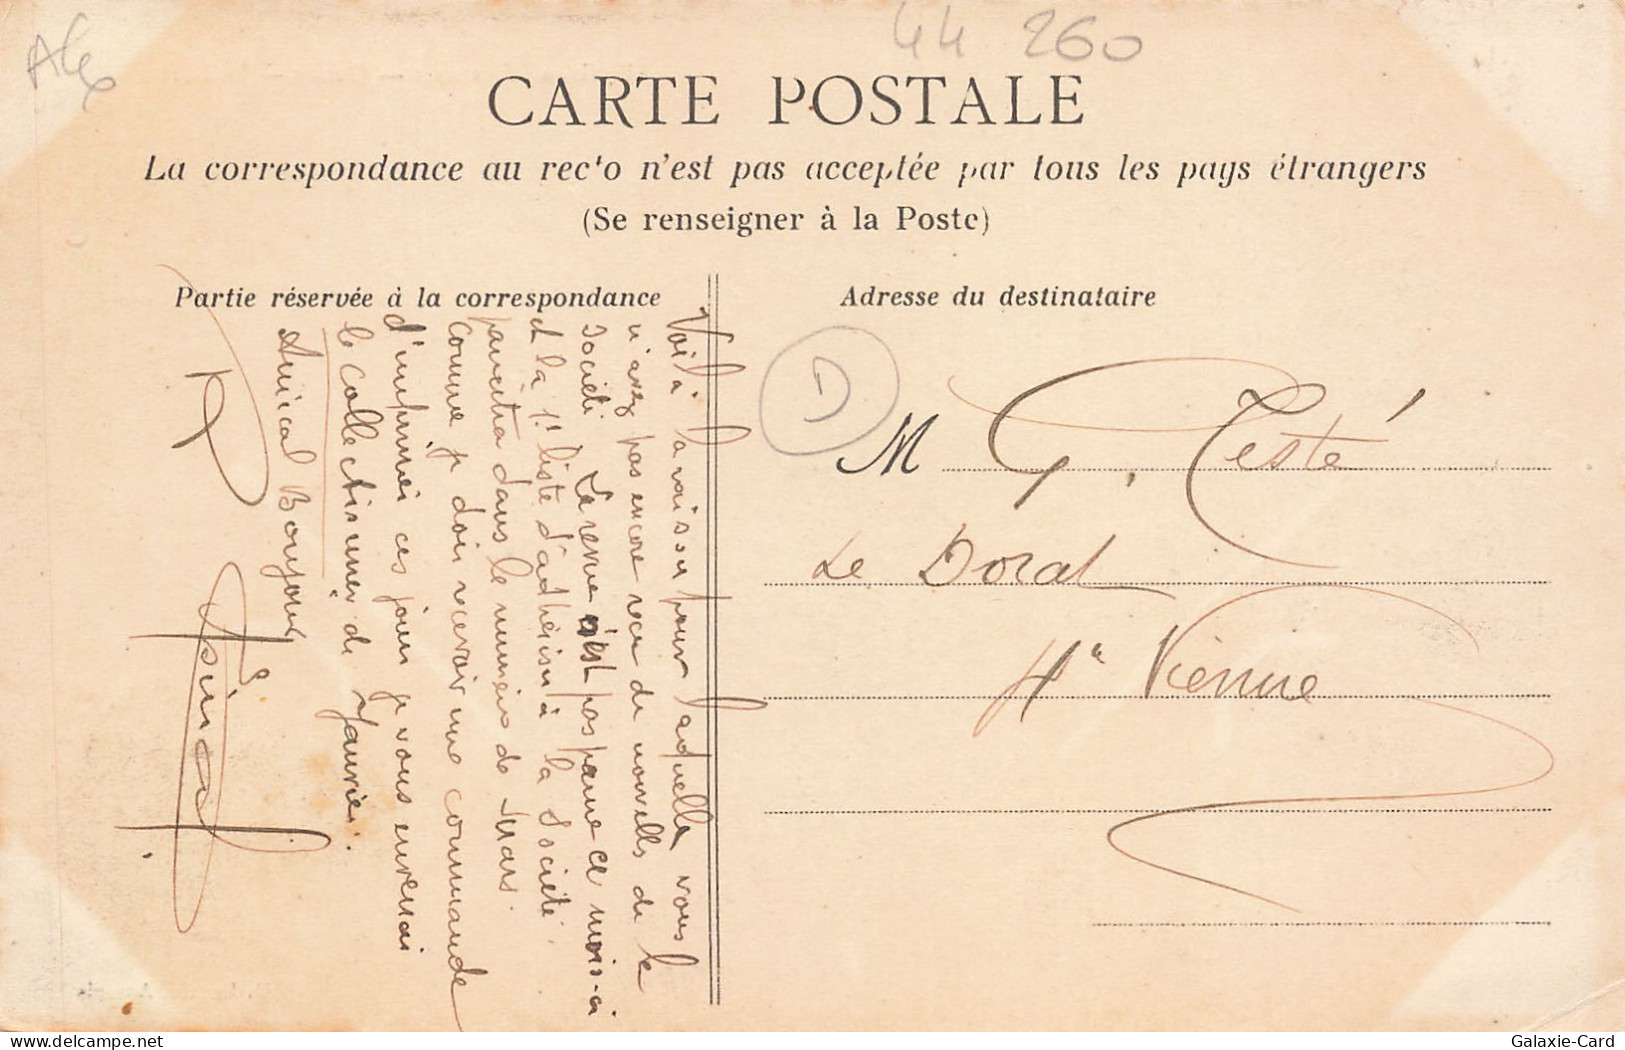 Alex
44 260
CARTE POSTALE
La correspondance au recto n'est pas acceptée par tous les pays étrangers
(Se renseigner à la Poste)
Partie réservée à la correspondance
Adresse du destinataire
Voilà la raison pour laquelle vous
n'avez pas encore reçu de nouvelles de la
Société. La revue n'est pas parue ce mois-ci
et la 1re liste d'adhésion à la Société
paraîtra dans le numéro de Mars.
Comme je dois recevoir une commande
d'imprimés ces jours je vous enverrai
le Collectionneur de Janvier.
Amical Bonjour
D
M G. Testé
Le Dorat
Hte Vienne
Galaxie-Card